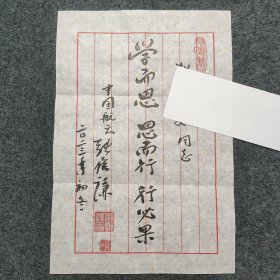 同志
学而思 思而行 行必果
中国航天 张履谦
二〇二三年初冬